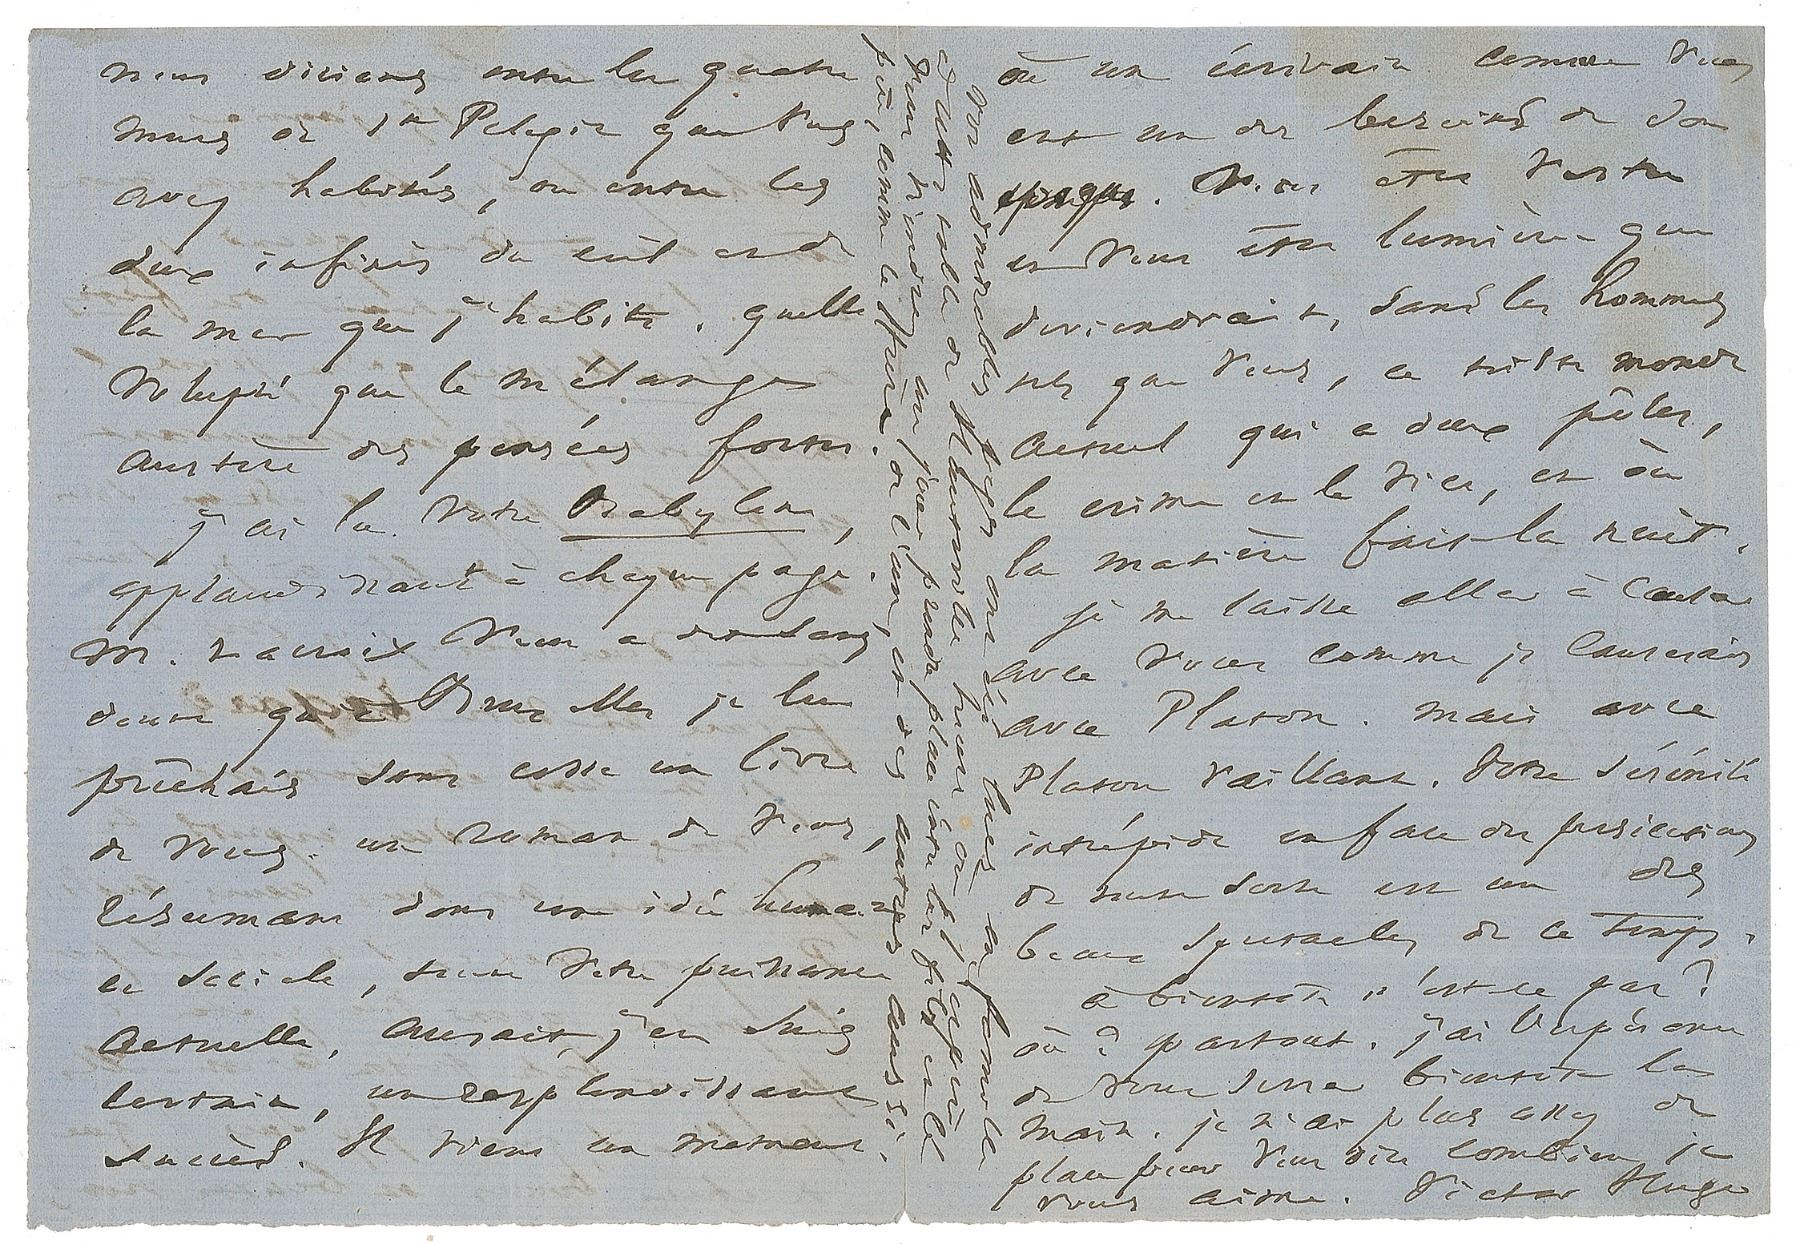 nous vivions entre les quatre
murs de Ste Pélagie que vous
avez habités, ou entre les
deux infinis du ciel et de
la mer que j'habite. quelle
volupté que le mélange
austère des pensées fortes.
j'ai lu votre Babylone,
applaudissant à chaque page.
M. Lacroix vous a dit sans
doute qu'à Bruxelles je lui
prêchais sans cesse un livre
de vous. un roman de vous,
résumant dans une idée humaine
ce siècle, toute votre puissance
actuelle, aurait, j'en suis
certain, un resplendissant
succès. Il vient un moment
où un écrivain comme vous
est un des besoins de son
époque. Vous êtes vertu
et vous êtes lumière. que
deviendrait, sans les hommes
tels que vous, ce triste monde
actuel qui a deux pôles,
le crime et le vice, et où
la matière fait la nuit.
je me laisse aller à causer
avec vous comme je causerais
avec Platon. mais avec
Platon vaillant. Votre sérénité
intrépide en face des persécutions
de toute sorte est un des
beaux spectacles de ce temps.
à bientôt n'est-ce pas?
où? partout. j'ai l'espérance
de vous serrer bientôt la
main. je n'ai plus assez de
place pour vous dire combien je
vous aime. Victor Hugo
vos admirables pages ont été lues en famille
à cette table de Hauteville house où j'espère
vous viendrez un jour prendre place entre les fils et le
père, comme le frère de l'un, et des autres aussi.